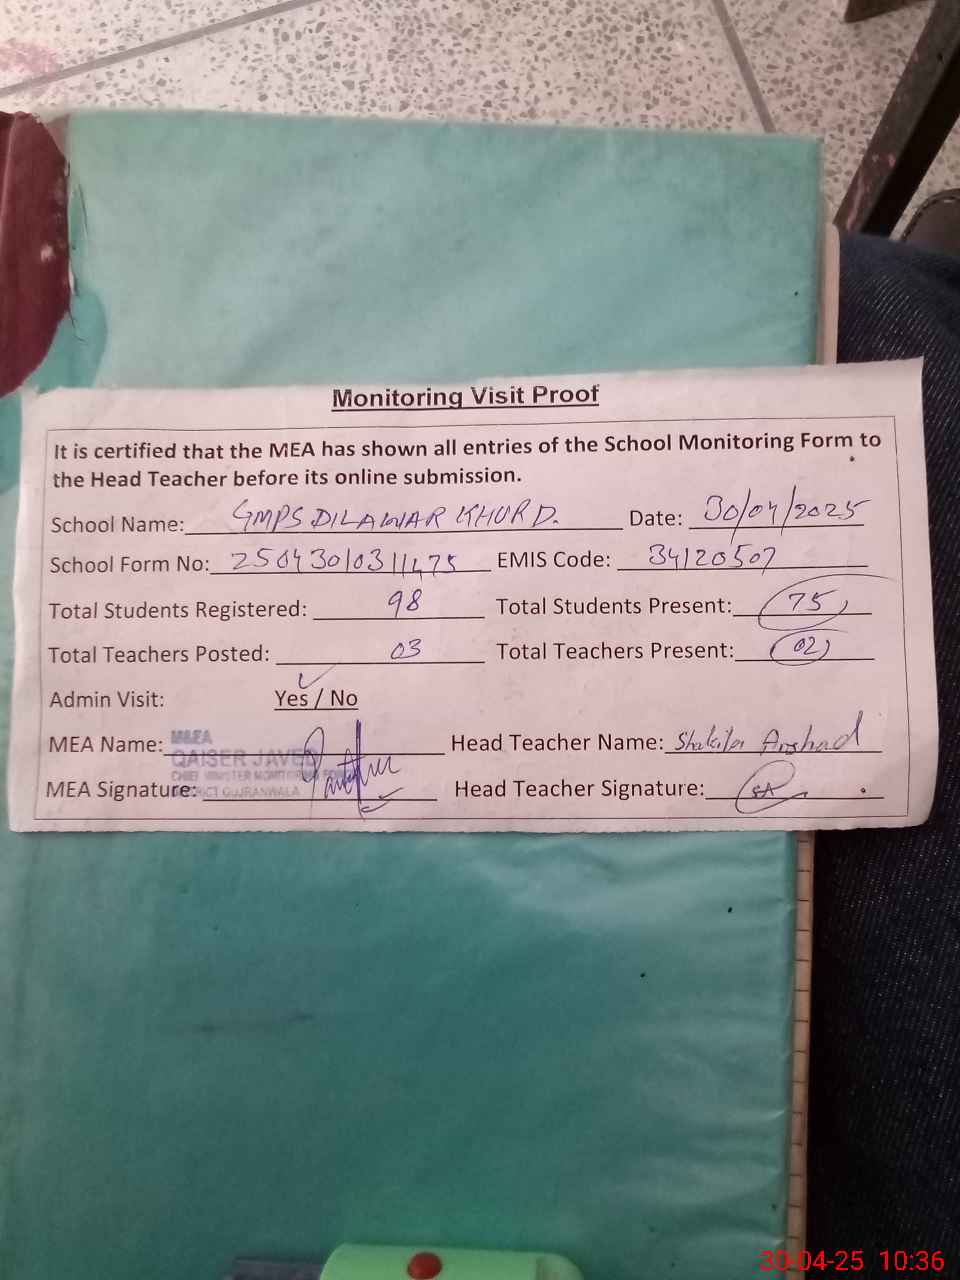 Monitoring Visit Proof
It is certified that the MEA has shown all entries of the School Monitoring Form to
the Head Teacher before its online submission.
School Name: GMPS DILAWAR KHURD. Date: 30/04/2025
School Form No: 25043010311475 EMIS Code: 34120507
Total Students Registered: 98 Total Students Present: 75
Total Teachers Posted: 03 Total Teachers Present: 02
Admin Visit: Yes / No
MEA Name: M&EA Head Teacher Name: Shakila Arshad
QAISER JAVED
CHIEF MINISTER MONITORING
MEA Signature: DISTRICT GUJRANWALA Head Teacher Signature: SA
30-04-25 10:36